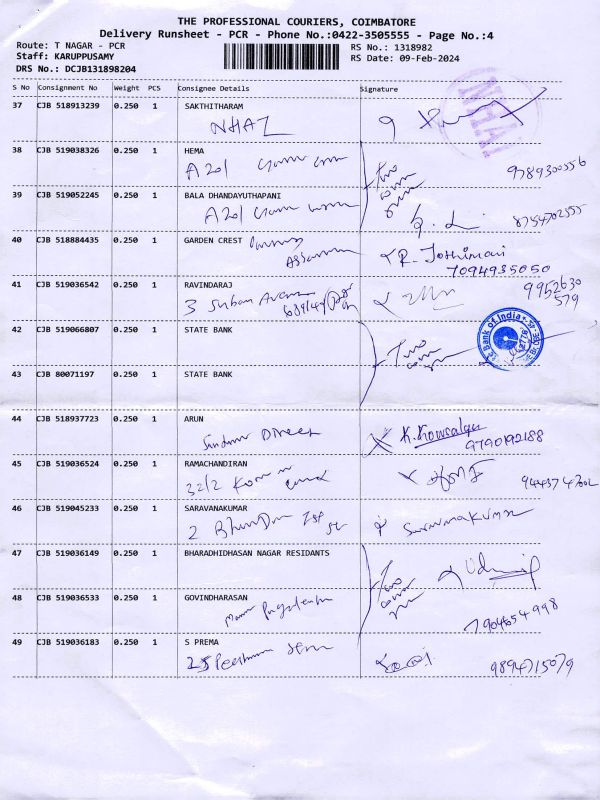 THE PROFESSIONAL COURIERS, COIMBATORE
Delivery Runsheet - PCR - Phone No.:0422-3505555 - Page No.:4
Route: T NAGAR - PCR
RS No.: 1318982
Staff: KARUPPUSAMY
RS Date: 09-Feb-2024
DRS No.: DCJB131898204
S No Consignment No Weight PCS Consignee Details Signature
37 CJB 518913239 0.250 1 SAKTHITHARAM
NHAI
38 CJB 519038326 0.250 1 HEMA
A201
9789300556
39 CJB 519052245 0.250 1 BALA DHANDAYUTHAPANI
A201
8754702555
40 CJB 518884435 0.250 1 GARDEN CREST
R. Jothimani
7094935050
41 CJB 519036542 0.250 1 RAVINDARAJ
3
9952630
579
42 CJB 519066807 0.250 1 STATE BANK
Bank of India
43 CJB 80071197 0.250 1 STATE BANK
44 CJB 518937723 0.250 1 ARUN
Street K. Kowsalya
9790192188
45 CJB 519036524 0.250 1 RAMACHANDIRAN
32/2
46 CJB 519045233 0.250 1 SARAVANAKUMAR
2 1st st Saravanakumar
47 CJB 519036149 0.250 1 BHARADHIDHASAN NAGAR RESIDANTS
48 CJB 519036533 0.250 1 GOVINDHARASAN
7904654998
49 CJB 519036183 0.250 1 S PREMA
25
9894715079